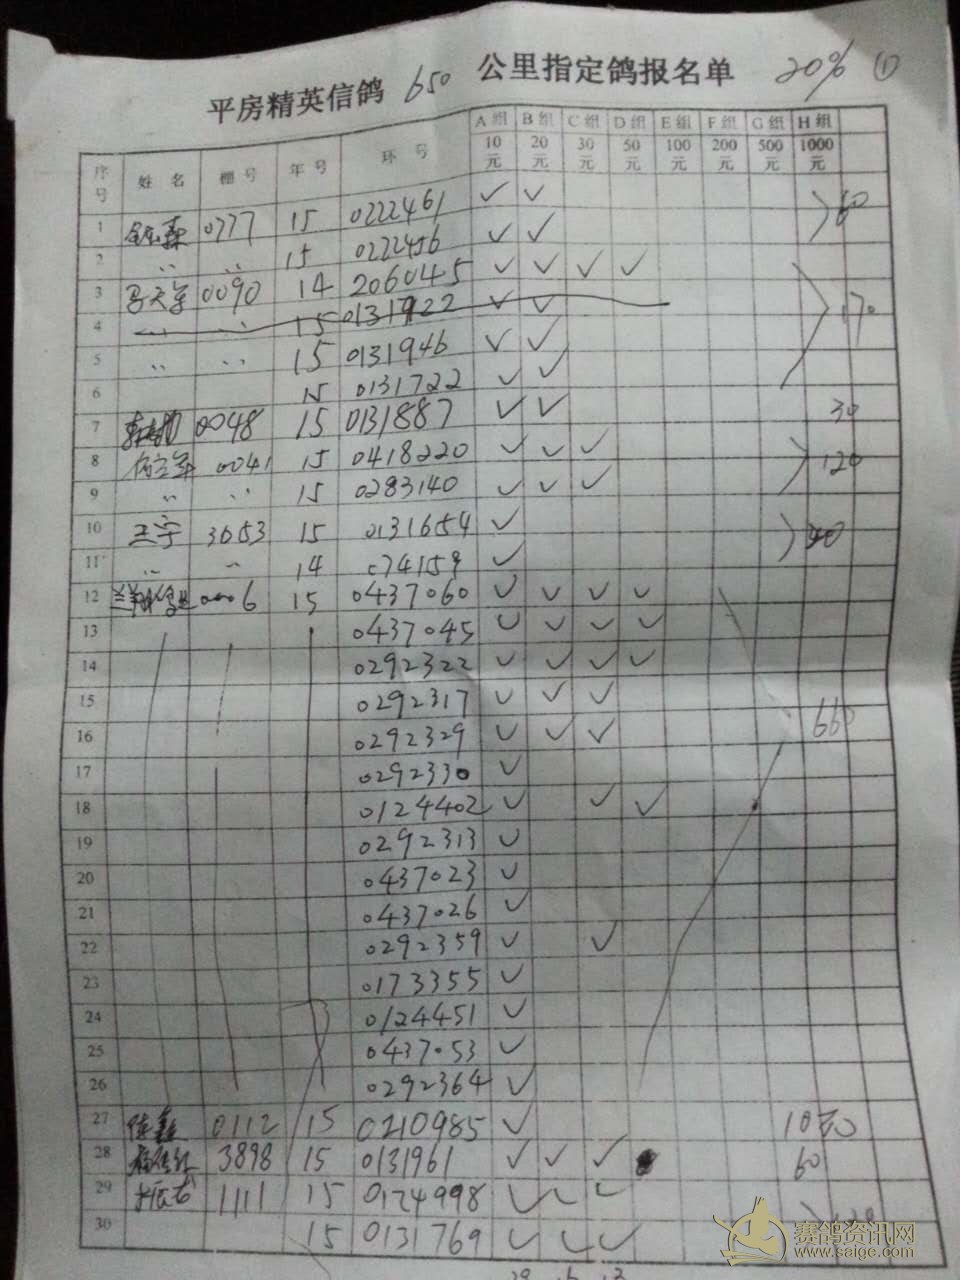 平房精英信鸽 650 公里指定鸽报名单 20% ①
序号 姓名 棚号 年号 环号 A组10元 B组20元 C组30元 D组50元 E组100元 F组200元 G组500元 H组1000元
1 0777 15 0222461 ✓ ✓ 60
2 〃 〃 15 0222456 ✓ ✓
3 0090 14 2060445 ✓ ✓ ✓ ✓ 170
4 〃 〃 15 0131922 ✓ ✓
5 〃 〃 15 0131946 ✓ ✓
6 15 0131722 ✓ ✓
7 0048 15 0131887 ✓ ✓ 30
8 0041 15 0418220 ✓ ✓ ✓ 120
9 〃 〃 15 0283140 ✓ ✓ ✓
10 王宇 3653 15 0131654 ✓
11 〃 〃 14 074159 ✓
12 0006 15 0437060 ✓ ✓ ✓ ✓
13 0437045 ✓ ✓ ✓ ✓
14 0292322 ✓ ✓ ✓ ✓
15 0292317 ✓ ✓ ✓
16 0292329 ✓ ✓ ✓ 660
17 0292330 ✓
18 0124402 ✓ ✓ ✓
19 0292313 ✓
20 0437023 ✓
21 0437026 ✓
22 0292359 ✓ ✓
23 0173355 ✓
24 0124451 ✓
25 0437053 ✓
26 0292364 ✓
27 0112 15 0210985 ✓ 10元
28 3898 15 0131961 ✓ ✓ ✓ 60
29 1111 15 0124998 ✓ ✓ ✓
30 15 0131769 ✓ ✓ ✓
赛鸽资讯网
www.saigc.com